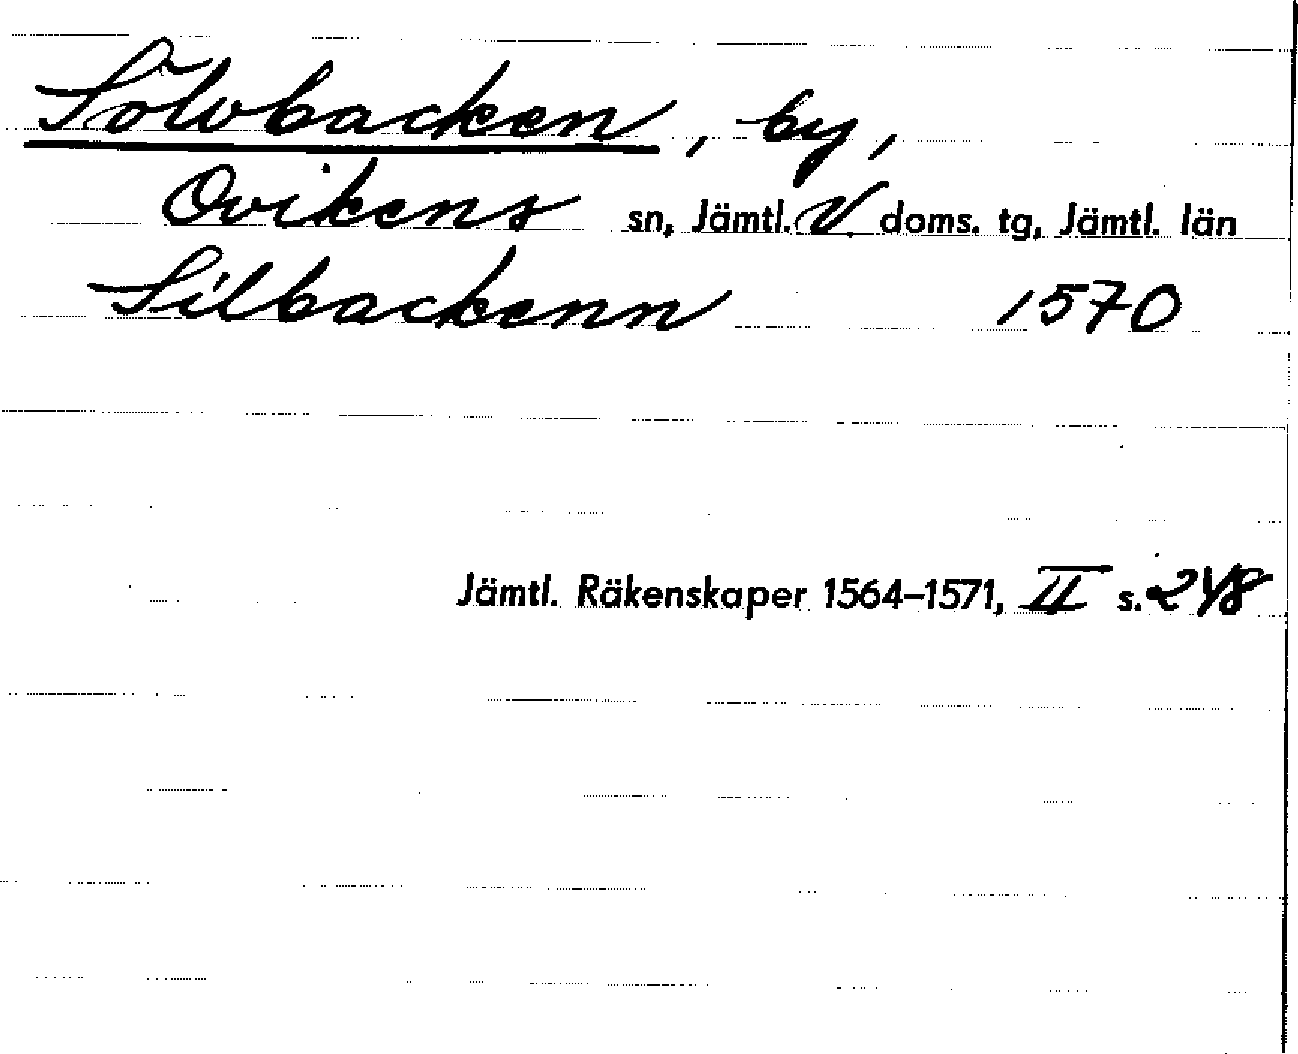 Sölvbacken, by,
Ovikens sn, Jämtl. V. doms. tg, Jämtl. län
Silbackenn 1570
Jämtl. Räkenskaper 1564–1571, II s. 248